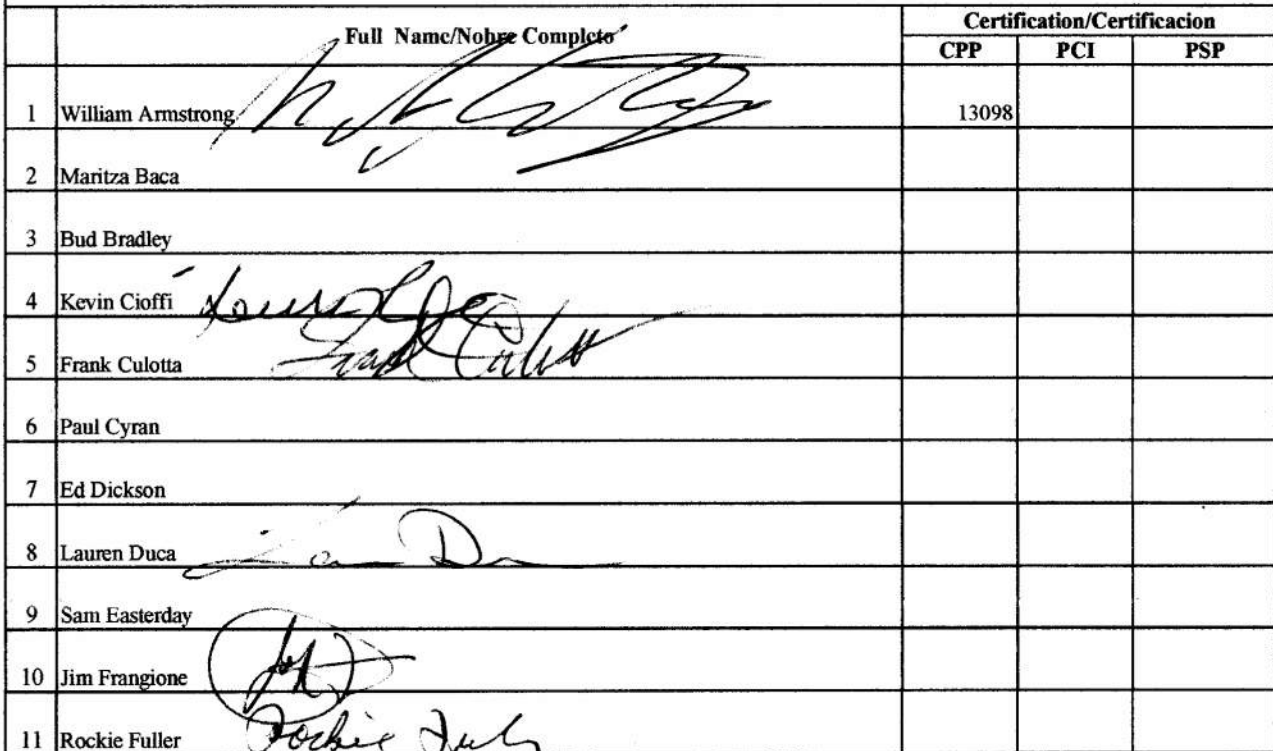 Full Name/Nobre Completo
Certification/Certificacion
CPP PCI PSP
1 William Armstrong 13098
2 Maritza Baca
3 Bud Bradley
4 Kevin Cioffi
5 Frank Culotta Frank Culotta
6 Paul Cyran
7 Ed Dickson
8 Lauren Duca
9 Sam Easterday
10 Jim Frangione
11 Rockie Fuller Rockie Fuller